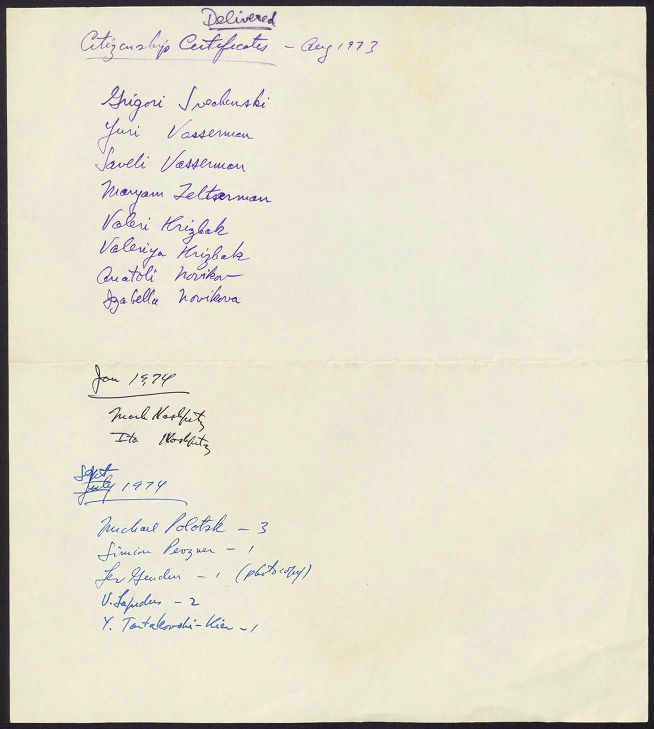 Delivered
Citizenship Certificates - Aug 1973
Grigori Svechenski
Yuri Vasserman
Saveli Vasserman
Maryam Zeltserman
Valeri Krizhak
Valeriya Krizhak
Anatoli Novikov
Izabella Novikova
Jan 1974
Mark Nashpitz
Ita Nashpitz
Sept
July 1974
Michael Polotsk - 3
Simion Pevzner - 1
Lev Gendin - 1 (photocopy)
V. Lapidus - 2
Y. Tartakovski-Kiev - 1